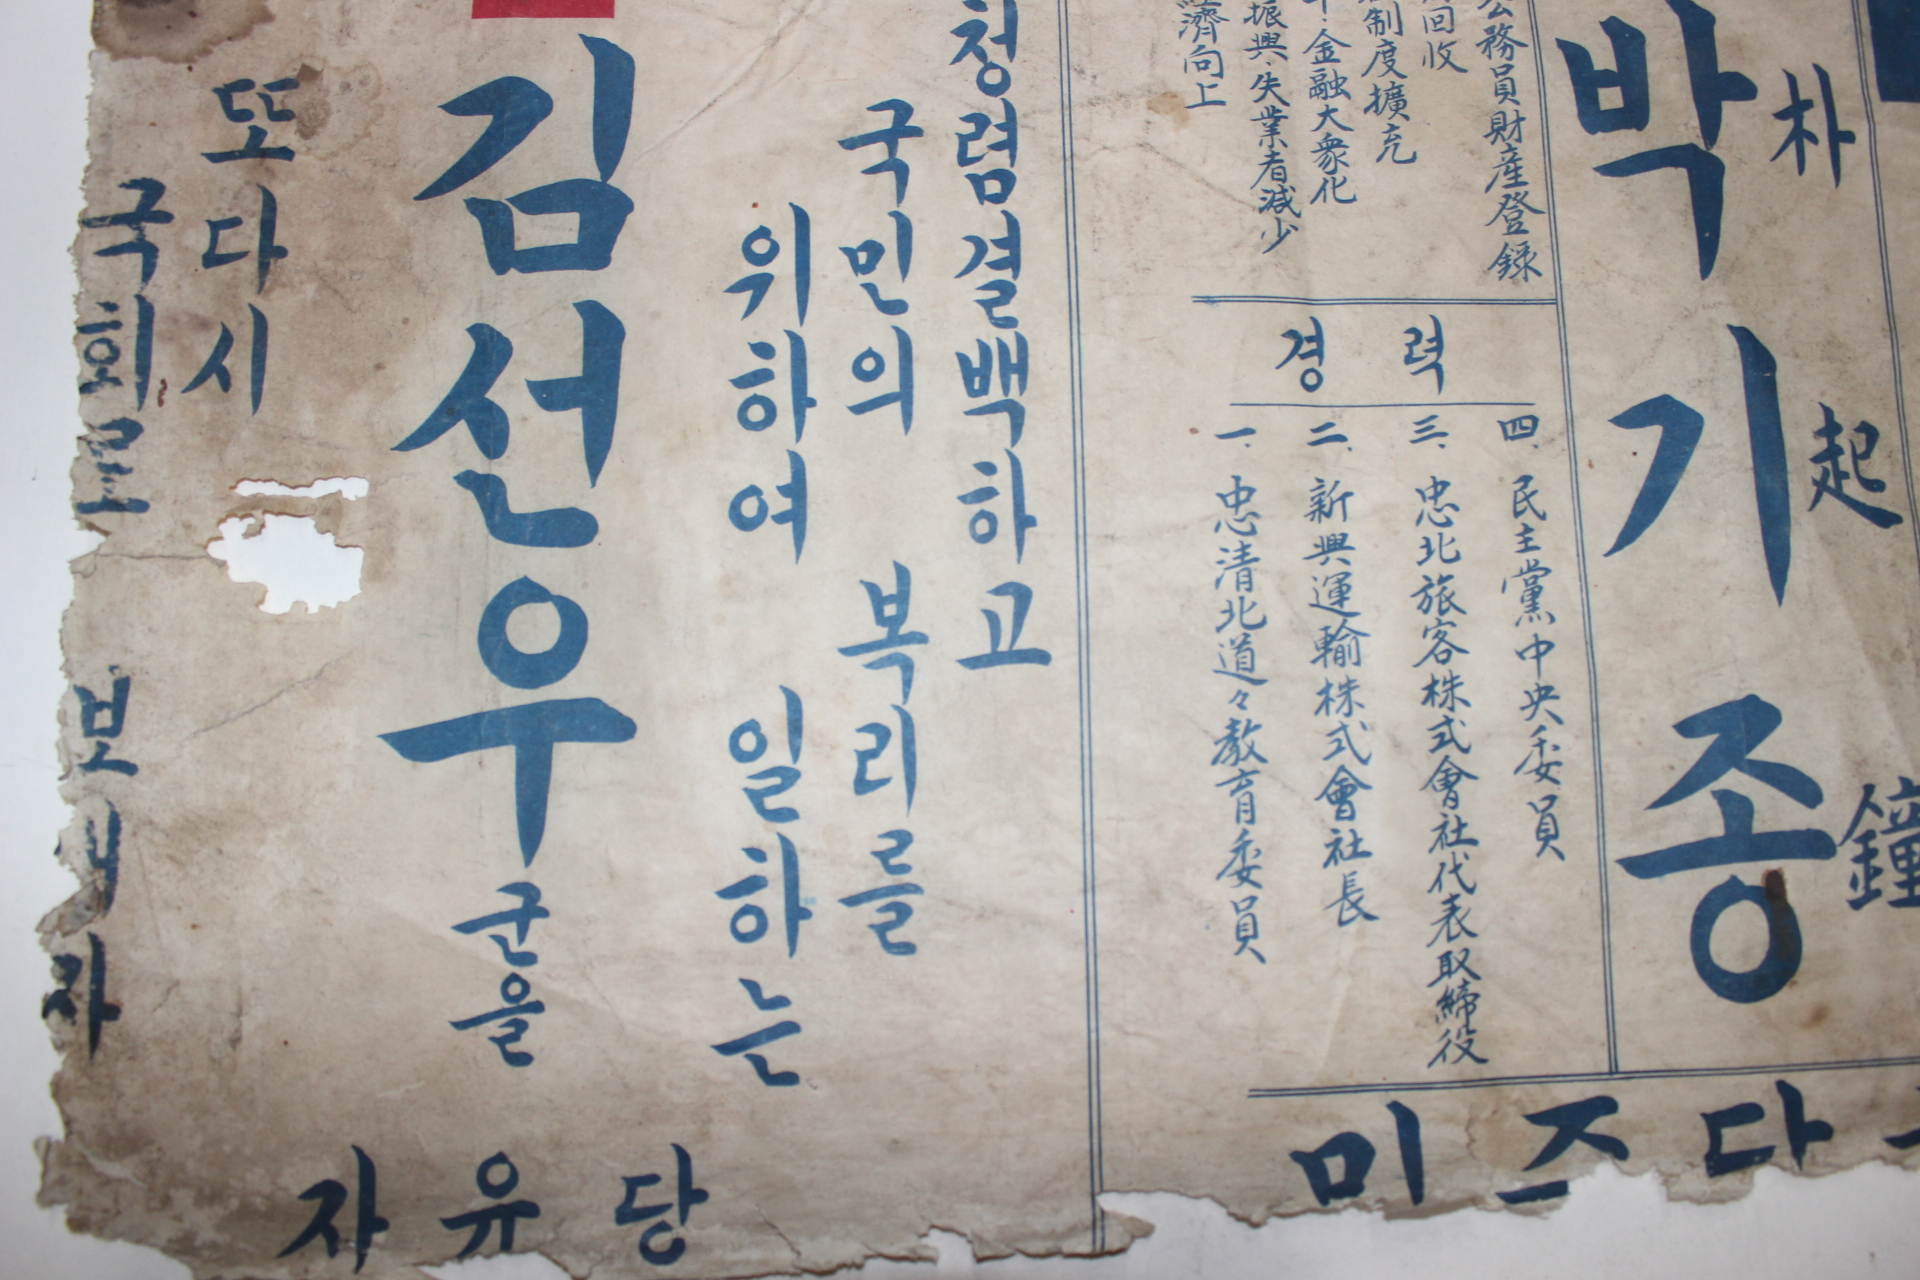 朴起鐘
박기종
濟向上
振興·失業者減少
金融大衆化
制度擴充
回收
公務員財産登録
경력
一. 忠清北道々教育委員
二. 新興運輸株式會社長
三. 忠北旅客株式會社代表取締役
四. 民主黨中央委員
민주당
청렴결백하고
국민의 복리를
위하여 일하는
김선우 군을
또다시
국회로 보내자
자유당